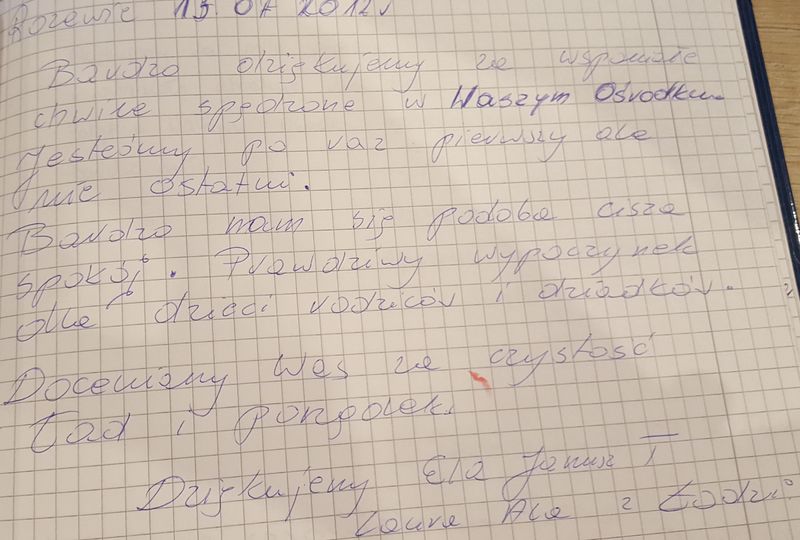 Rozewie 15.07.2012r
Bardzo dziękujemy za wspaniałe
chwile spędzone w Waszym Ośrodku.
Jesteśmy po raz pierwszy ale
nie ostatni.
Bardzo nam się podoba cisza
spokój. Prawdziwy wypoczynek
dla dzieci rodziców i dziadków.
Doceniamy Was za czystość
Ład i porządek.
Dziękujemy Ela Janusz
Laura Ala z Łodzi